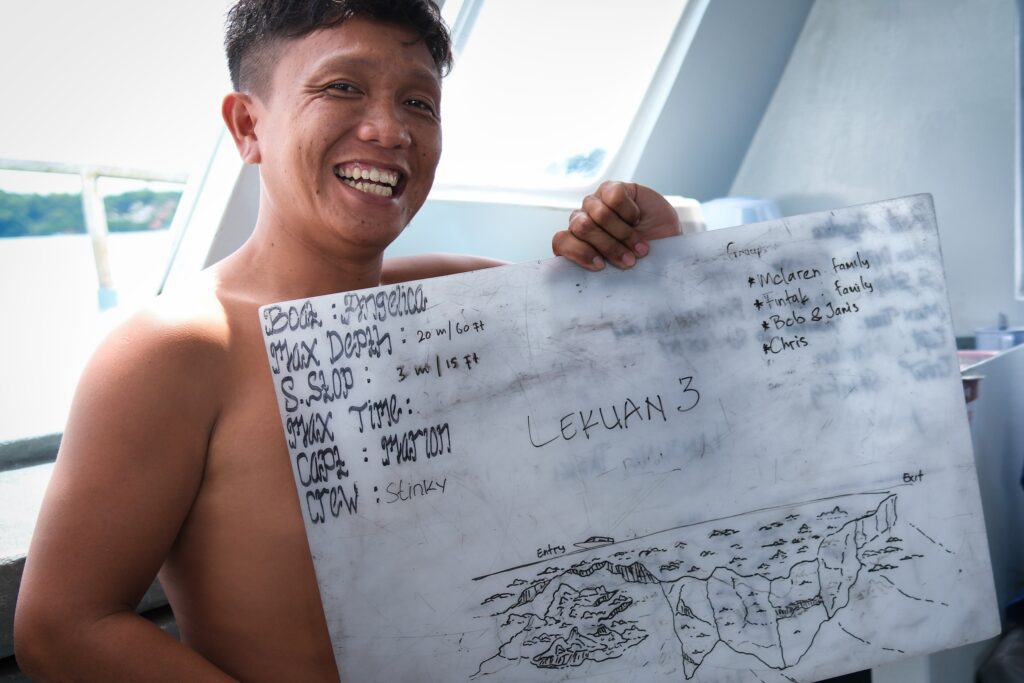 Boat : Angelica
Max Depth : 20 m/60 ft
S. Stop : 3 m/15 ft
Max Time :
Capt : Marion
Crew : Stinky
Groups
*Mclaren family
*Fintak family
*Bob & Janis
*Chris
LEKUAN 3
Entry
Exit